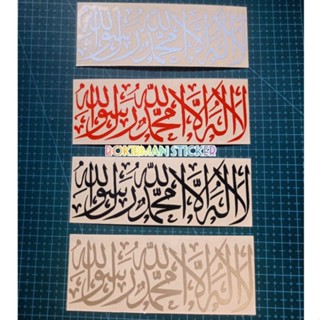 لا إله إلا الله محمد رسول الله
لا إله إلا الله محمد رسول الله
BOKEMAN STICKER
لا إله إلا الله محمد رسول الله
لا إله إلا الله محمد رسول الله